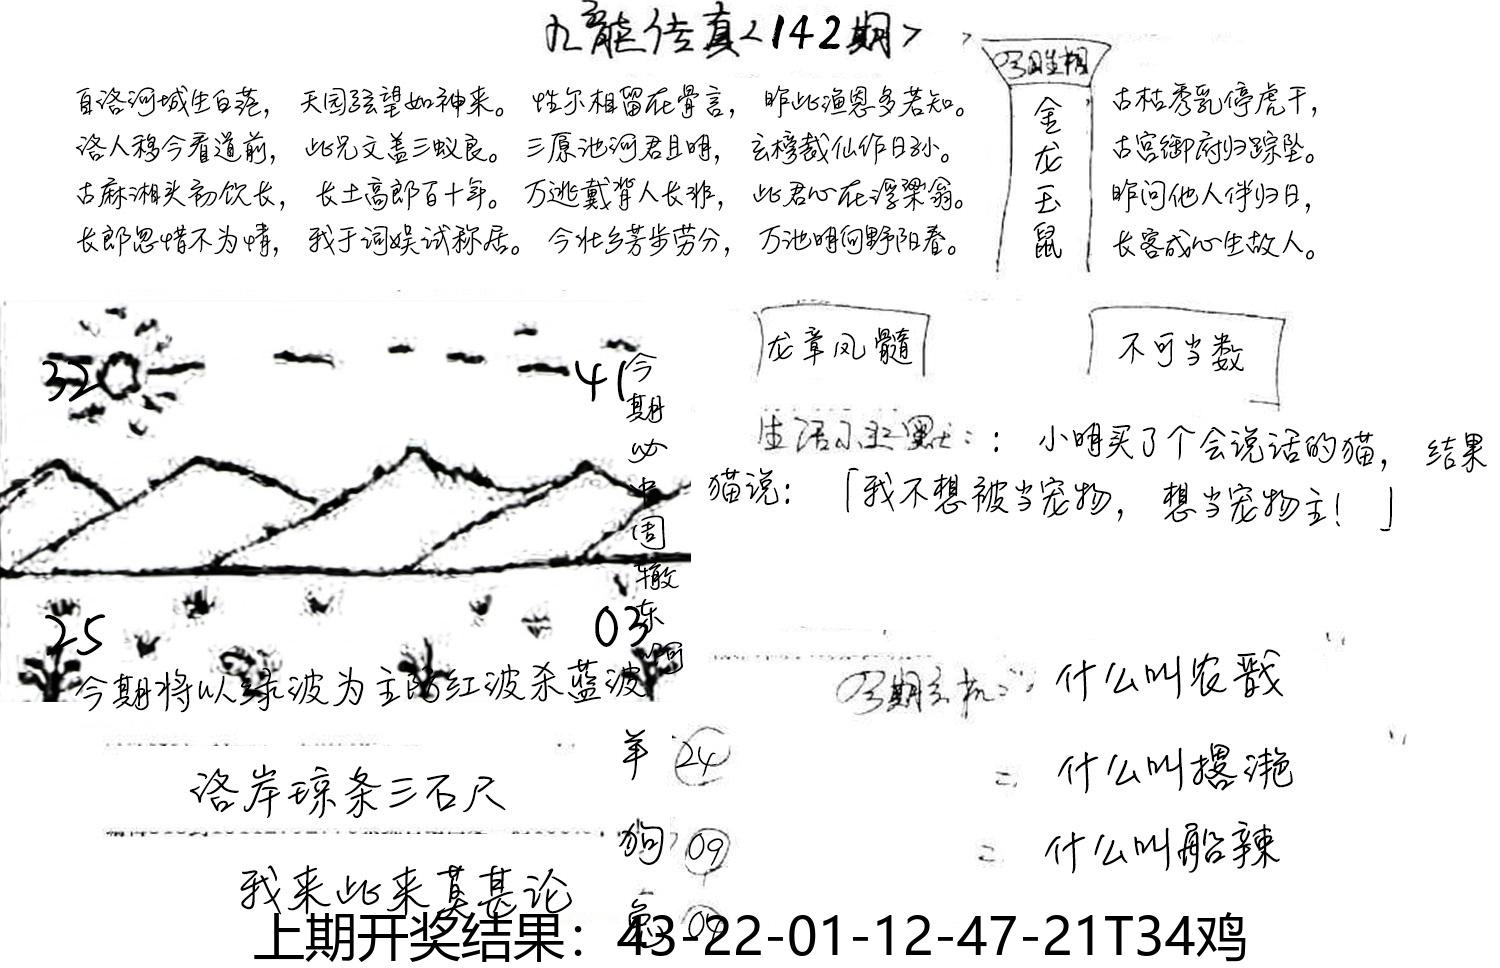 九龍传真<142期>
自洛河城生白莲， 天园弦望如神来。 性尔相留在骨言， 昨此渔恩多若知。
洛人稳今看道前， 此兄文盖三蚁良。 三原池河君且明， 玄榜哉仙作日孙。
古麻湘头初饮长， 长土高郎百十年。 万逃戴背人长非， 此君心在浮梁翁。
长郎思惜不为情， 我于词娱试称居。 今壮乡芳步劳分， 万池明向野阳春。
金龙玉鼠
古枯秀乳停虎干，
古宫御府归踪坠。
昨问他人伴归日，
长客成心生故人。
龙章凤髓
不可当数
32
41
25
03
今期必中周辙东
小明买了个会说话的猫， 结果
猫说：「我不想被当宠物， 想当宠物主！」
今期将以绿波为主的红波杀蓝波
什么叫农戬
什么叫撂滟
什么叫船辣
洛岸琼条三石尺
我来此来莫甚论
羊 24
狗 09
上期开奖结果：43-22-01-12-47-21T34鸡